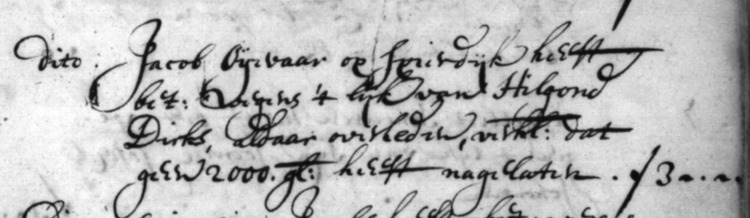 dito. Jacob Oijevaar op Spierdijk heeft
bet: wegens 't lijk van Hilgond
Dirks, aldaar overleden, verkl: dat
geen 2000. gl: heeft nagelaten. ƒ 3 -. -.